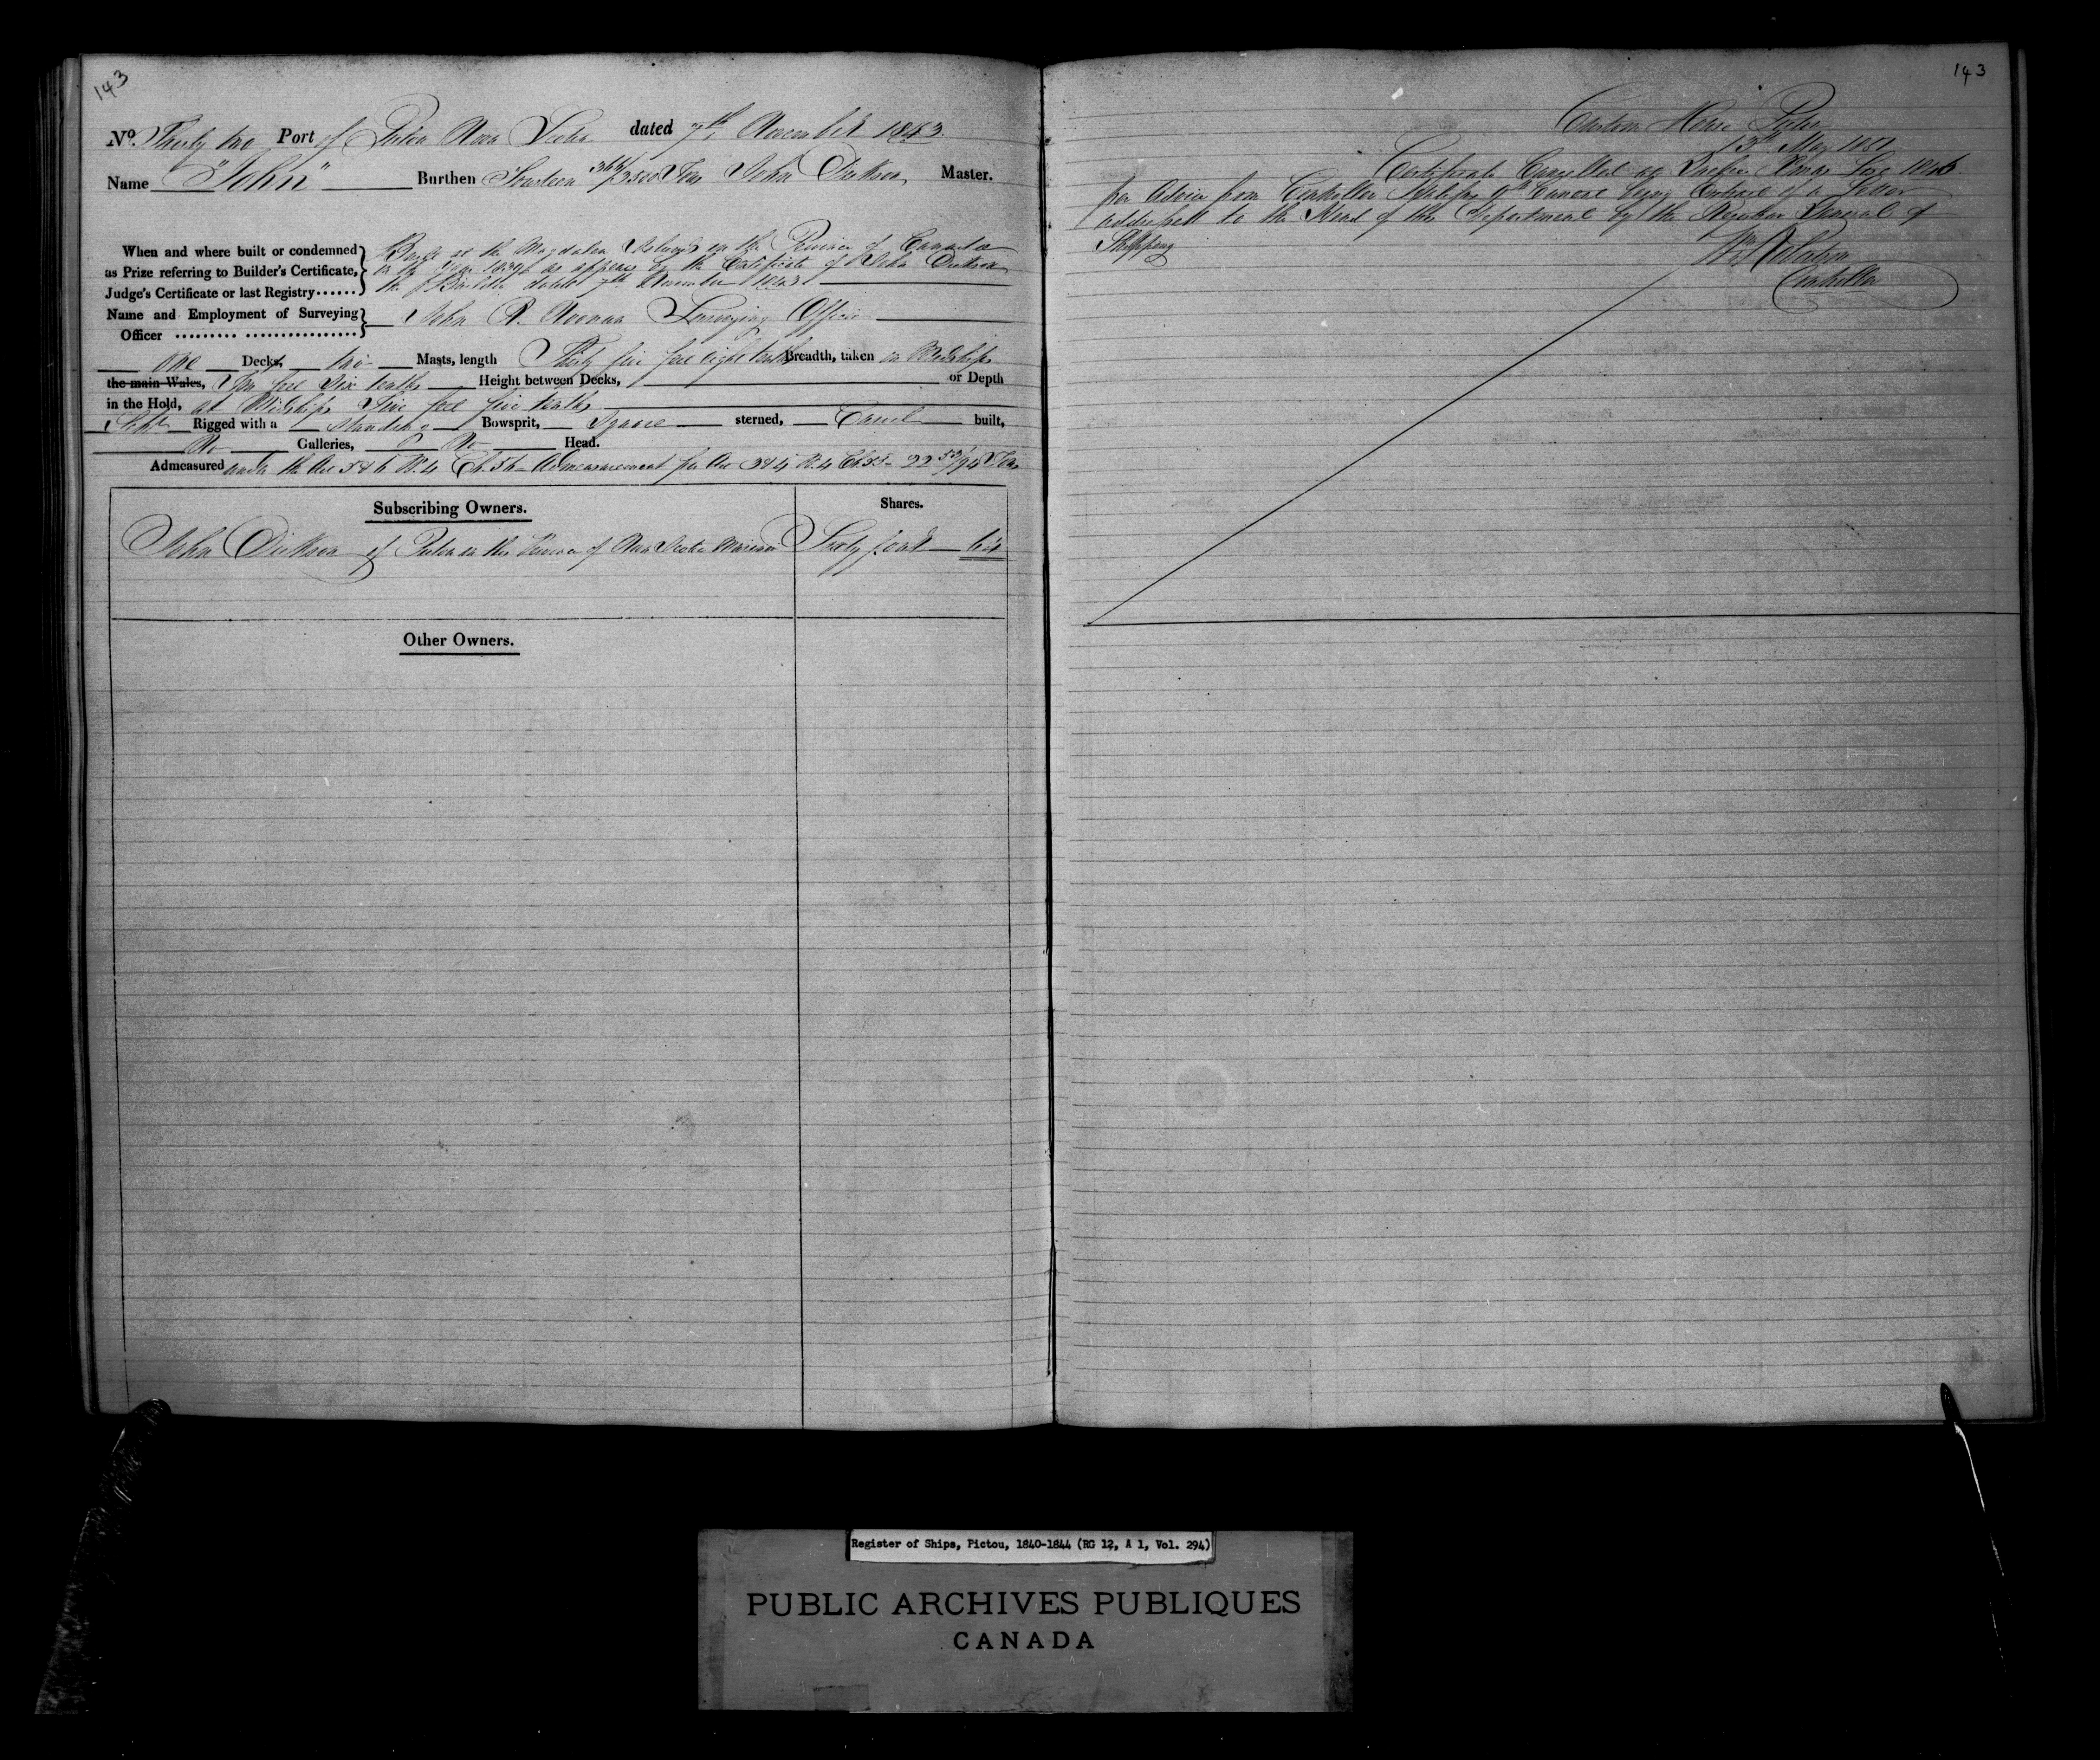 143
Nº. Thirty two Port of Pictou Nova Scotia dated 7th November 1843.
Name "John" Burthen Fourteen 366/3500 Tons John Dickson Master.
When and where built or condemned as Prize referring to Builder's Certificate, Judge's Certificate or last Registry......
Built at the Magdalen Islands in the Province of Canada
in the Year as appears by the Certificate of John Dickson
the Builder dated 7th November 1843
Name and Employment of Surveying Officer
John R. Noonan Surveying Officer
One Decks, two Masts, length Thirty five feet eight tenths Breadth, taken in Midships
the main Wales, Ten feet Six tenths Height between Decks, or Depth
in the Hold, at Midships Five feet five tenths
Schr Rigged with a Standing Bowsprit, Square sterned, Carvel built,
No Galleries, No Head.
Admeasured under the Act 5 & 6 W. 4 Ch. 56 Admeasurement per Act 3 & 4 W. 4 Ch. 55 22 53/94 Tons
Subscribing Owners. Shares.
John Dickson of Pictou in the Province of Nova Scotia Mariner Sixty four 64
Other Owners.
143
Custom House Pictou
13th May 1851
Certificate Cancelled at
per Advice from Controller being Contents of a Letter
addressed to the Head of this Department by the Registrar General of
Shipping
Controller
Register of Ships, Pictou, 1840-1844 (RG 12, A 1, Vol. 294)
PUBLIC ARCHIVES PUBLIQUES
CANADA